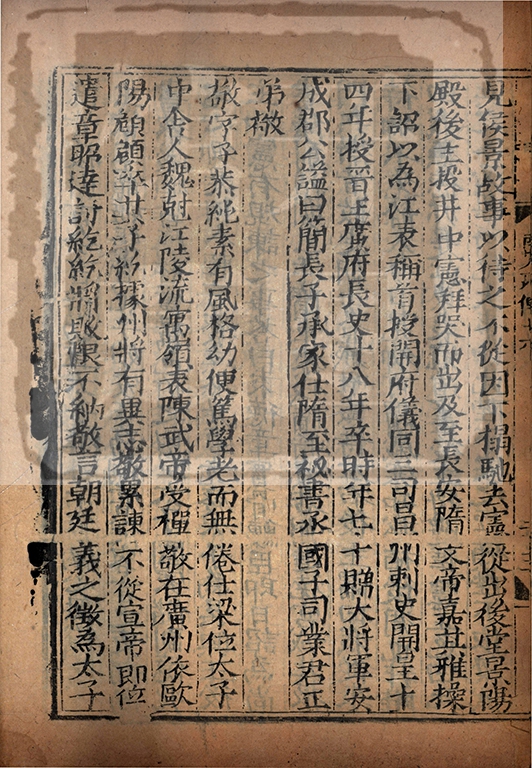 見侯景故事以待之不從因下榻馳去憲從出後堂景陽
殿後主投井中憲拜哭而出及至長安隋文帝嘉其雅操
下詔以為江表稱首授開府儀同三司昌州刺史開皇十
四年授晉王廣府長史十八年卒時年七十贈大將軍安
成郡公謚曰簡長子承家仕隋至秘書丞國子司業君正
弟敬
敬字子恭純素有風格幼便篤學老而無倦仕梁位太子
中舍人魏剋江陵流寓嶺表陳武帝受禪敬在廣州依歐
陽頠頠卒其子紇據州將有異志敬累諫不從宣帝即位
遣章昭達討紇紇將敗恨不納敬言朝廷義之徵為太子